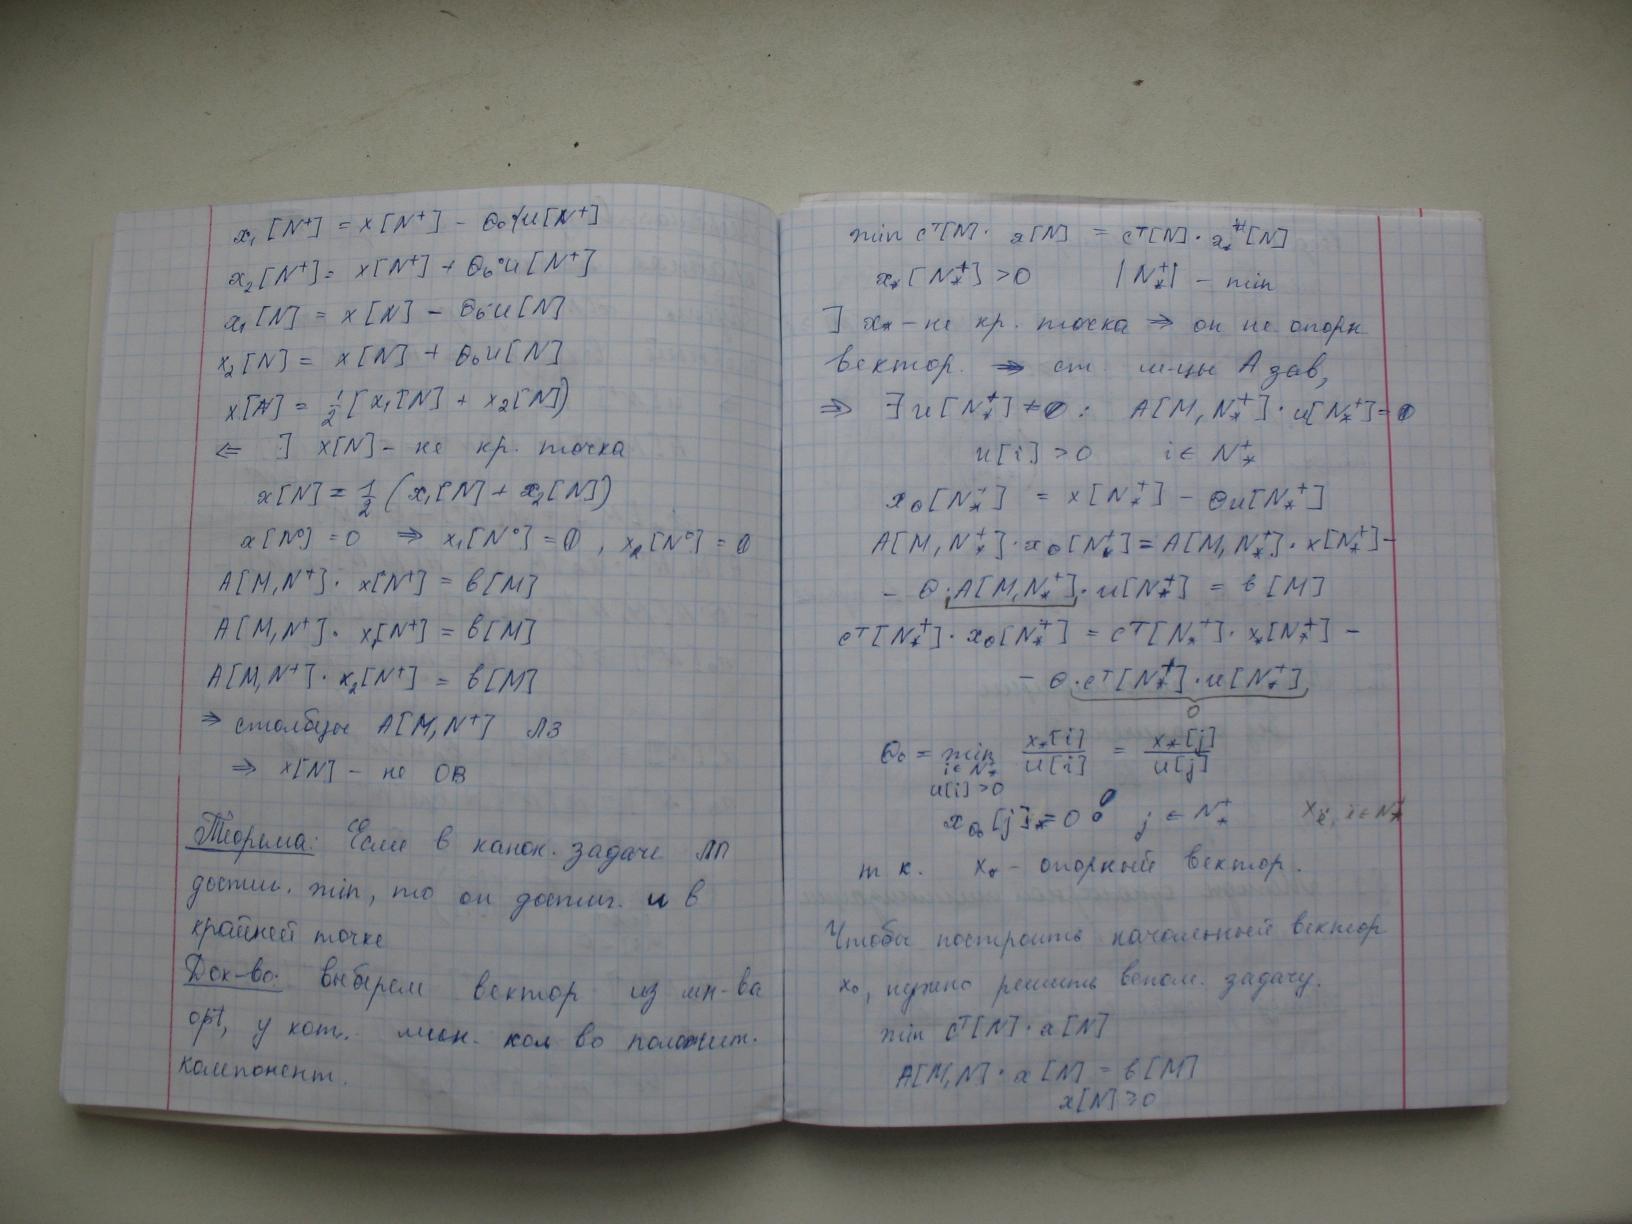 x₁[N⁺] = x[N⁺] − θ₀u[N⁺]
x₂[N⁺] = x[N⁺] + θ₀·u[N⁺]
x₁[N] = x[N] − θ₀·u[N]
x₂[N] = x[N] + θ₀u[N]
x[N] = 1/2 [x₁[N] + x₂[N])
⇐ ] x[N] − не кр. точка
x[N] = 1/2 (x₁[N] + x₂[N])
x[N⁰] = 0 ⇒ x₁[N⁰] = 0, x₂[N⁰] = 0
A[M,N⁺]· x[N⁺] = b[M]
A[M,N⁺]· x₁[N⁺] = b[M]
A[M,N⁺]· x₂[N⁺] = b[M]
⇒ столбцы A[M,N⁺] ЛЗ
⇒ x[N] − не ОВ
Теорема: Если в канон. задаче ЛП
достиг. min, то он достиг. и в
крайней точке
Док-во: выберем вектор из мн-ва
opt, у кот. мин. кол во положит.
компонент.
min cᵀ[N]· x[N] = cᵀ[N]· x*[N]
x*[N*⁺] > 0 |N*⁺| − min
] x* − не кр. точка ⇒ он не опорн
вектор. ⇒ ст. м-цы A зав,
⇒ ∃ u[N*⁺] ≠ 0 : A[M,N*⁺]· u[N*⁺] = 0
u[i] > 0 i ∈ N*⁺
xθ[N*⁺] = x[N*⁺] − θu[N*⁺]
A[M,N*⁺]· xθ[N*⁺] = A[M,N*⁺]· x[N*⁺] −
− θ·A[M,N*⁺]· u[N*⁺] = b[M]
cᵀ[N*⁺]· xθ[N*⁺] = cᵀ[N*⁺]· x*[N*⁺] −
− θ·cᵀ[N*⁺]·u[N*⁺]
0
θ₀ = min x*[i]/u[i] = x*[j]/u[j]
i ∈ N*⁺
u[i] > 0
xθ₀[j] = 0 ! j ∈ N*⁺
т к. x₀ − опорный вектор.
Чтобы построить начальный вектор
x₀, нужно решить вспом. задачу.
min cᵀ[N]· x[N]
A[M,N]· x[N] = b[M]
x[N] ≥ 0